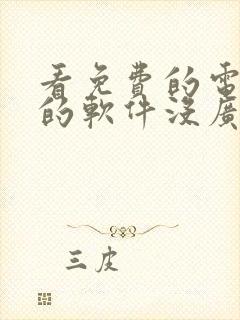 看免費的電
的軟件沒廣
三皮